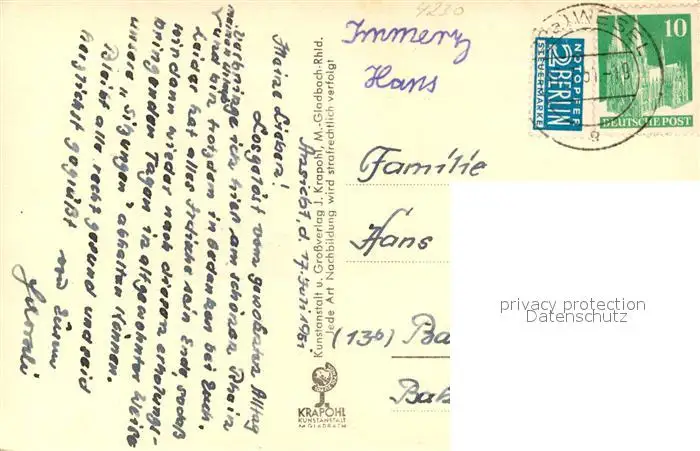 4230
Immerz
Hans
WESEL
10
DEUTSCHE POST
NOTOPFER
2 BERLIN
STEUERMARKE
Familie
Hans
(13b) Ba
Bah
privacy protection
www.ansichtskartenversand.com
Kunstanstalt u. Großverlag J. Krapohl, M.-Gladbach-Rhld.
Jede Art Nachbildung wird strafrechtlich verfolgt
KRAPOHL
KUNSTANSTALT
M GLADBACH
Ansicht, d. 17. Juli 1951
Meine Lieben!
Losgelöst vom gewohnten Alltag
verbringe ich hier am schönen Rhein
meinen Urlaub
und bin trotzdem in Gedanken bei Euch.
Leider hat alles Irdische sein Ende, sodaß
wir dann wieder nach diesen erholung-
bringenden Tagen in altgewohnter Weise
unsere "Sitzungen" abhalten können.
Bleibt alle recht gesund und seid
herzlichst gegrüßt
von Eurem